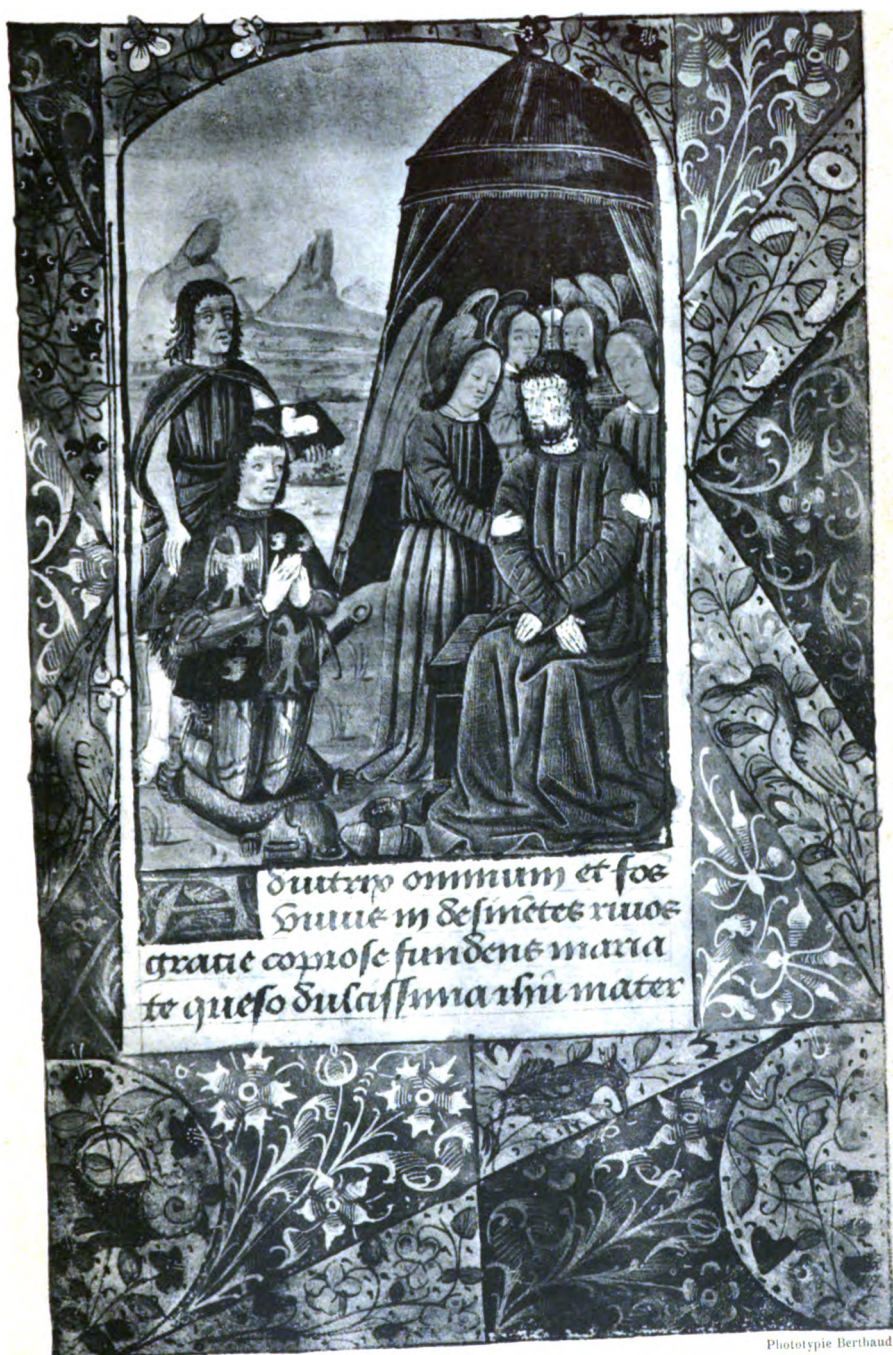 Adiutrix omnium et fōs
viuus indesinētes riuos
gracie copiose fundens maria
te queso dulcissima ihū mater
Phototypie Berthaud